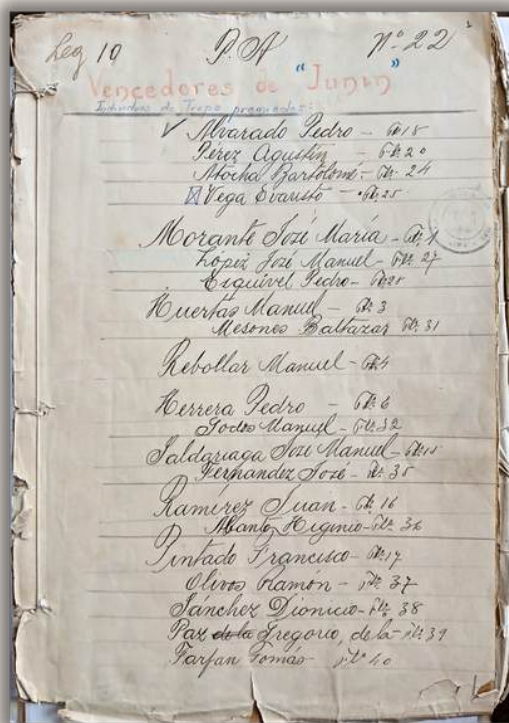 Leg 10 P. A Nº 22
Vencedores de "Junín"
Individuos de Tropa premiados:
Alvarado Pedro - Fk. 15
Pérez Agustín - Fk. 20
Atocha Bartolomé - Fk. 24
Vega Evaristo - Fk. 25
Morante José María - Fk. 1
López José Manuel - Fk. 27
Esquivel Pedro - Fk. 28
Huertas Manuel - Fk. 3
Mesones Baltazar Fk. 31
Rebollar Manuel - Fk. 4
Herrera Pedro - Fk. 6
Godos Manuel - Fk. 32
Saldariaga José Manuel - Fk. 15
Fernandez José - Fk. 35
Ramírez Juan - Fk. 16
Abanto Higinio - Fk. 36
Pintado Francisco - Fk. 17
Olivos Ramón - Fk. 37
Sánchez Dionicio - Fk. 38
Paz de la Gregorio, de la - Fk. 39
Farfan Tomás Fk. 40